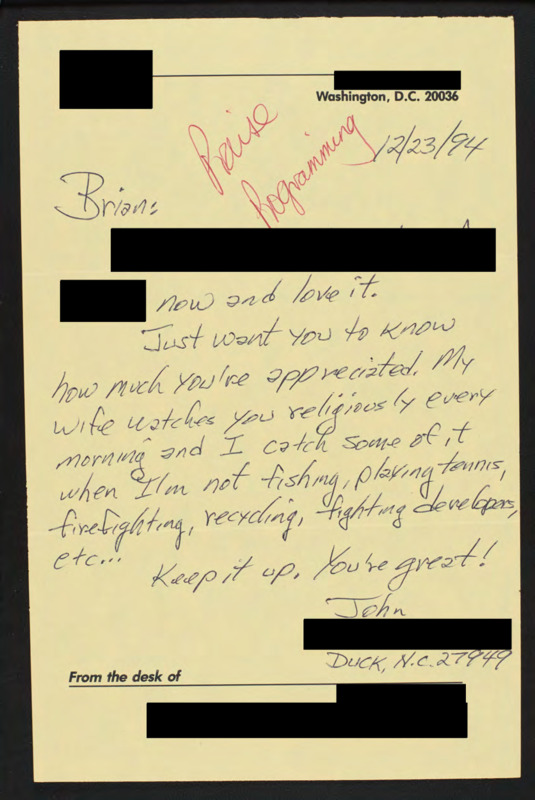 Washington, D.C. 20036
Praise
Programming
12/23/94
Brian:
now and love it.
Just want you to know
how much you're appreciated. My
wife watches you religiously every
morning and I catch some of it
when I'm not fishing, playing tennis,
firefighting, recycling, fighting developers,
etc...
Keep it up. You're great!
John
DUCK, N.C. 27949
From the desk of